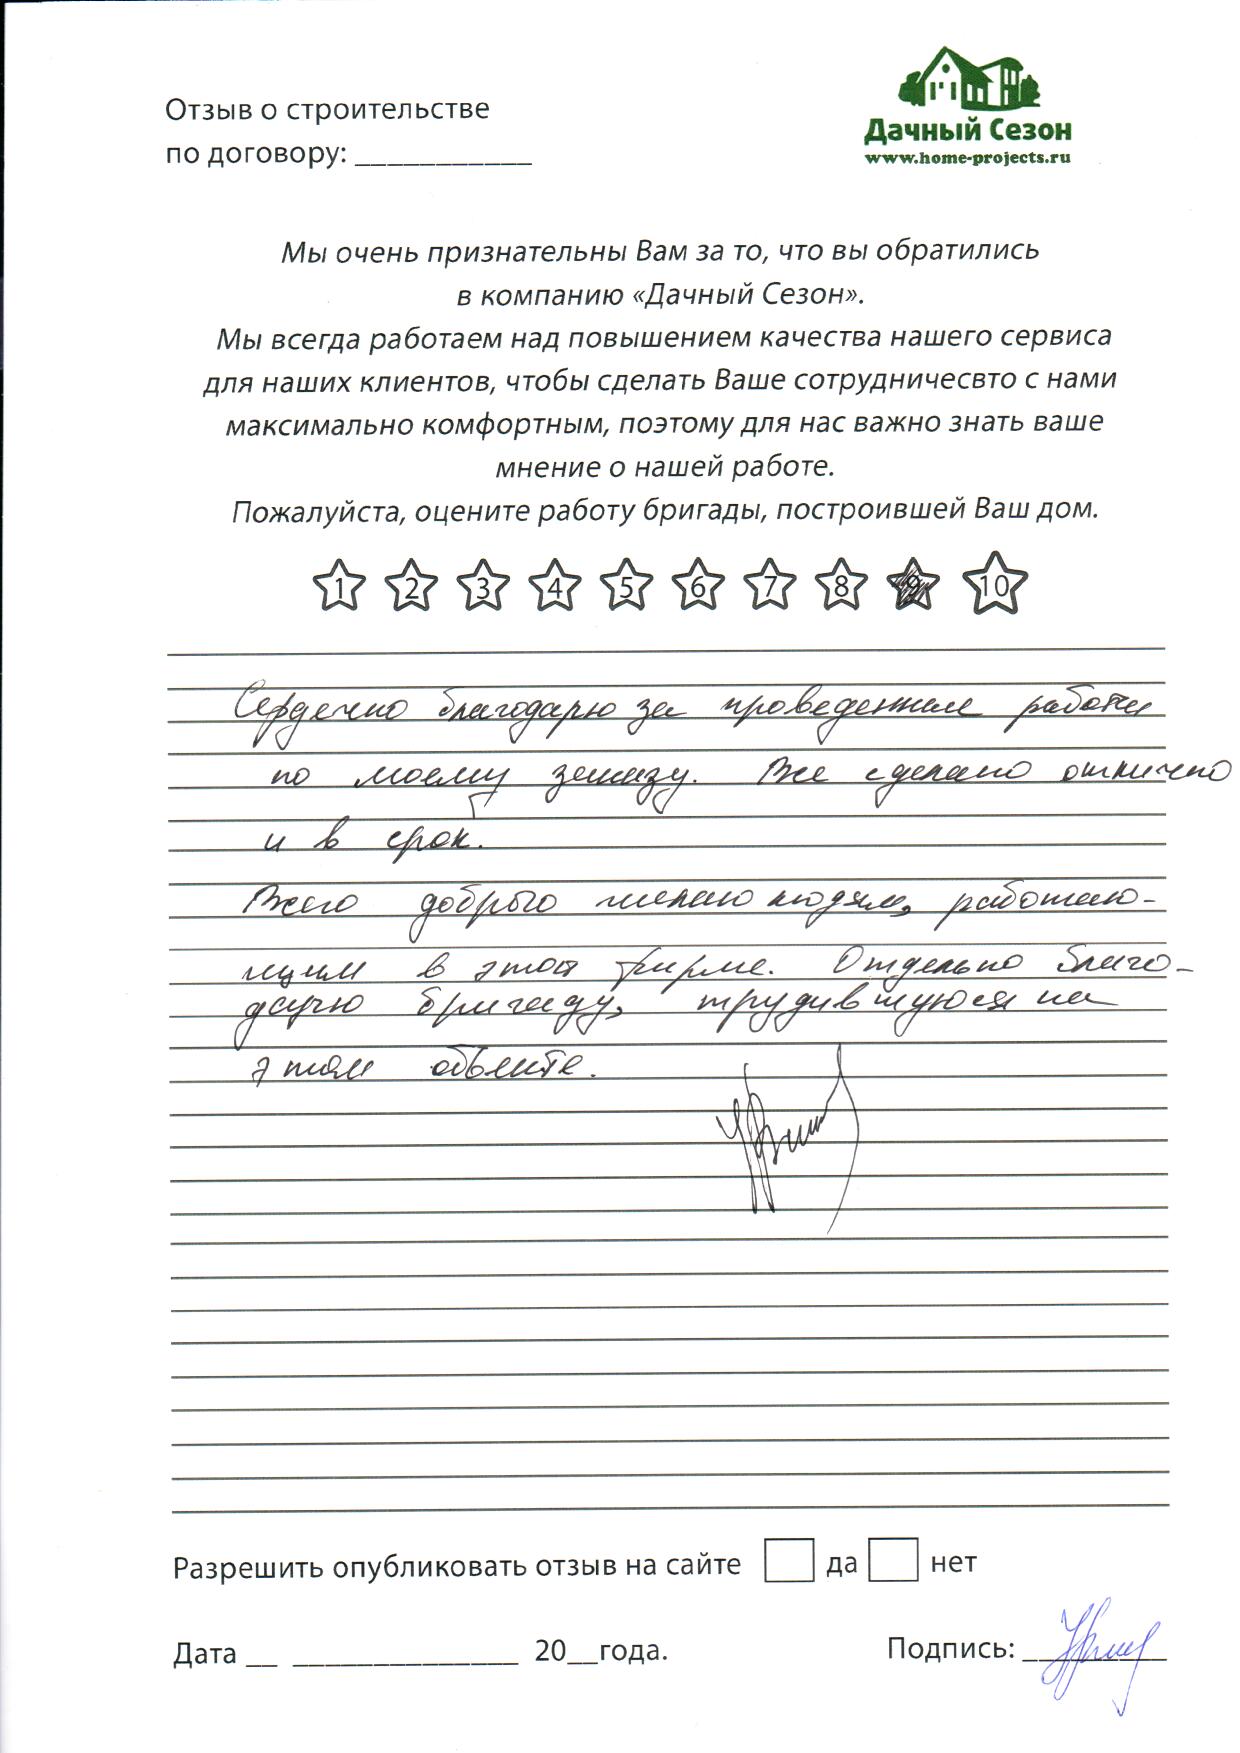 Отзыв о строительстве
по договору: ___________
Дачный Сезон
www.home-projects.ru
Мы очень признательны Вам за то, что вы обратились
в компанию «Дачный Сезон».
Мы всегда работаем над повышением качества нашего сервиса
для наших клиентов, чтобы сделать Ваше сотрудничесвто с нами
максимально комфортным, поэтому для нас важно знать ваше
мнение о нашей работе.
Пожалуйста, оцените работу бригады, построившей Ваш дом.
1 2 3 4 5 6 7 8 9 10
Сердечно благодарю за проведенные работы
по моему заказу. Все сделано отлично
и в срок.
Всего доброго желаю людям, работаю-
щим в этой фирме. Отдельно благо-
дарю бригаду, трудившуюся на
этом объекте.
Разрешить опубликовать отзыв на сайте да нет
Дата __ ______________ 20__года.
Подпись: _________